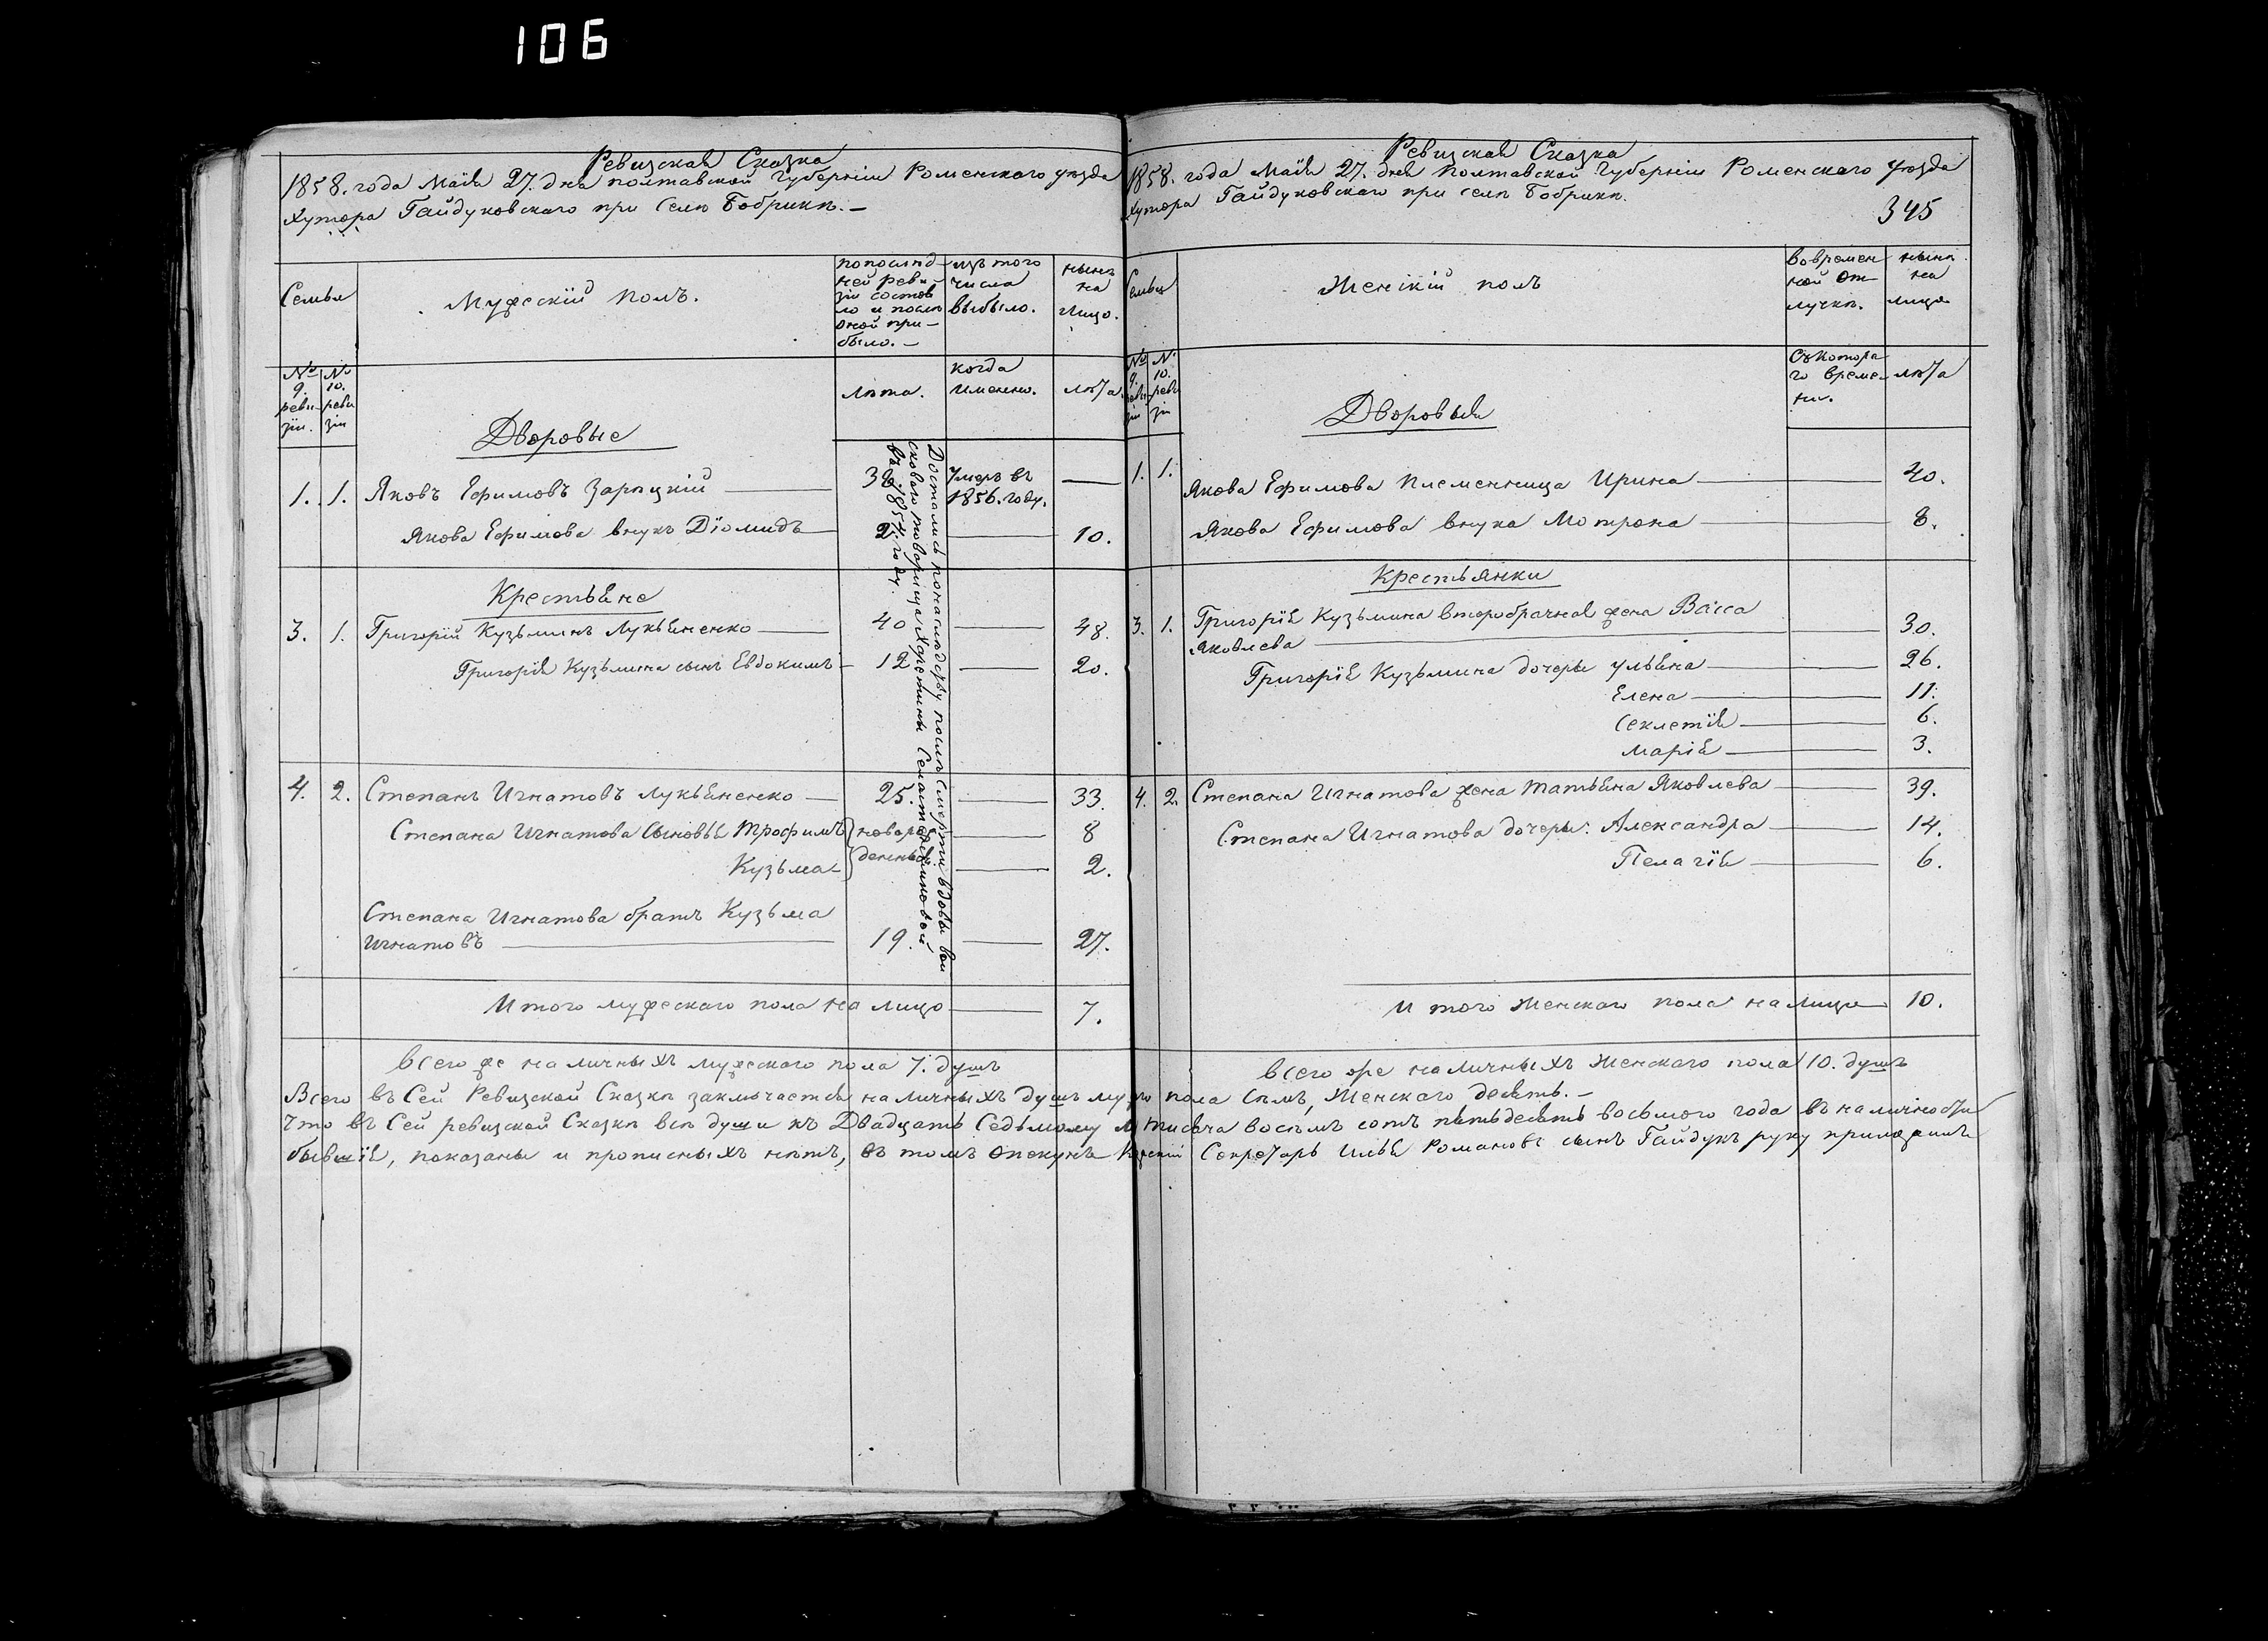 106
Ревизская Сказка
1858. года Маія 27. дня Полтавской Губерніи Роменского уѣзда
Хутора Гайдуковскаго при Селѣ Бобрикѣ. —
Семьи
Мужескій полъ.
по послѣд-
ней реви-
зіи состоя
ло и послѣ
оной при-
было. —
изъ того
числа
выбыло.
нынѣ
на
лицо.
№
9.
реви-
зіи.
№
10.
реви
зіи
лѣта.
когда
именно.
лѣта.
Дворовые
1. 1. Яковъ Ефимовъ Зарицкій — 38 Умеръ въ
1856. году. —
Якова Ефимова внукъ Діомидъ — 2 — 10.
Крестьяне
3. 1. Григорій Кузьминъ Лукьяненко — 40 — 48.
Григорія Кузьмина сынъ Евдокимъ — 12 — 20.
4. 2. Степанъ Игнатовъ Лукьяненко — 25. — 33.
Степана Игнатова сыновья Трофимъ новорож — 8
Кузьма — денные — 2.
Степана Игнатова братъ Кузьма
Игнатовъ — 19. — 27.
Достались по наслѣдству послѣ смерти вдовы вой
сковаго товарища Харитины
въ 1854. году.
Итого мужескаго пола на лицо — 7.
Всего же наличныхъ мужескаго пола 7. душъ
Ревизская Сказка
1858. года Маія 27. дня Полтавской Губерніи Роменскаго уѣзда
Хутора Гайдуковскаго при селѣ Бобрикѣ.
345
Семьи
Женскій полъ
Во времен
ной от-
лучкѣ.
нынѣ
на
лицо
№
9.
реви
зіи
№
10.
реви
зіи
Съ котора-
го време-
ни.
лѣта
Дворовыя
1. 1. Якова Ефимова племенница Ирина — 40.
Якова Ефимова внука Мотрона — 8.
Крестьянки
3. 1. Григорія Кузьмина второбрачная жена Васса
Яковлева — 30.
Григорія Кузьмина дочери Ульяна — 26.
Елена — 11.
Секлетія — 6.
Марія — 3.
4. 2. Степана Игнатова жена Татьяна Яковлева — 39.
Степана Игнатова дочери: Александра — 14.
Пелагія — 6.
Итого женскаго пола на лицо — 10.
Всего же наличныхъ женскаго пола 10. душъ
Всего въ Сей Ревизской Сказкѣ заключается наличныхъ душъ муж. пола Семь, Женскаго десять. —
Что въ Сей ревизской Сказкѣ всѣ души къ Двадцать Седьмому тысяча восемь сотъ пятьдесятъ восьмого года въ наличности
бывшія, показаны и прописныхъ нѣтъ, въ томъ опекунъ Секретарь Илья Романовъ сынъ Гайдукъ руку приложилъ